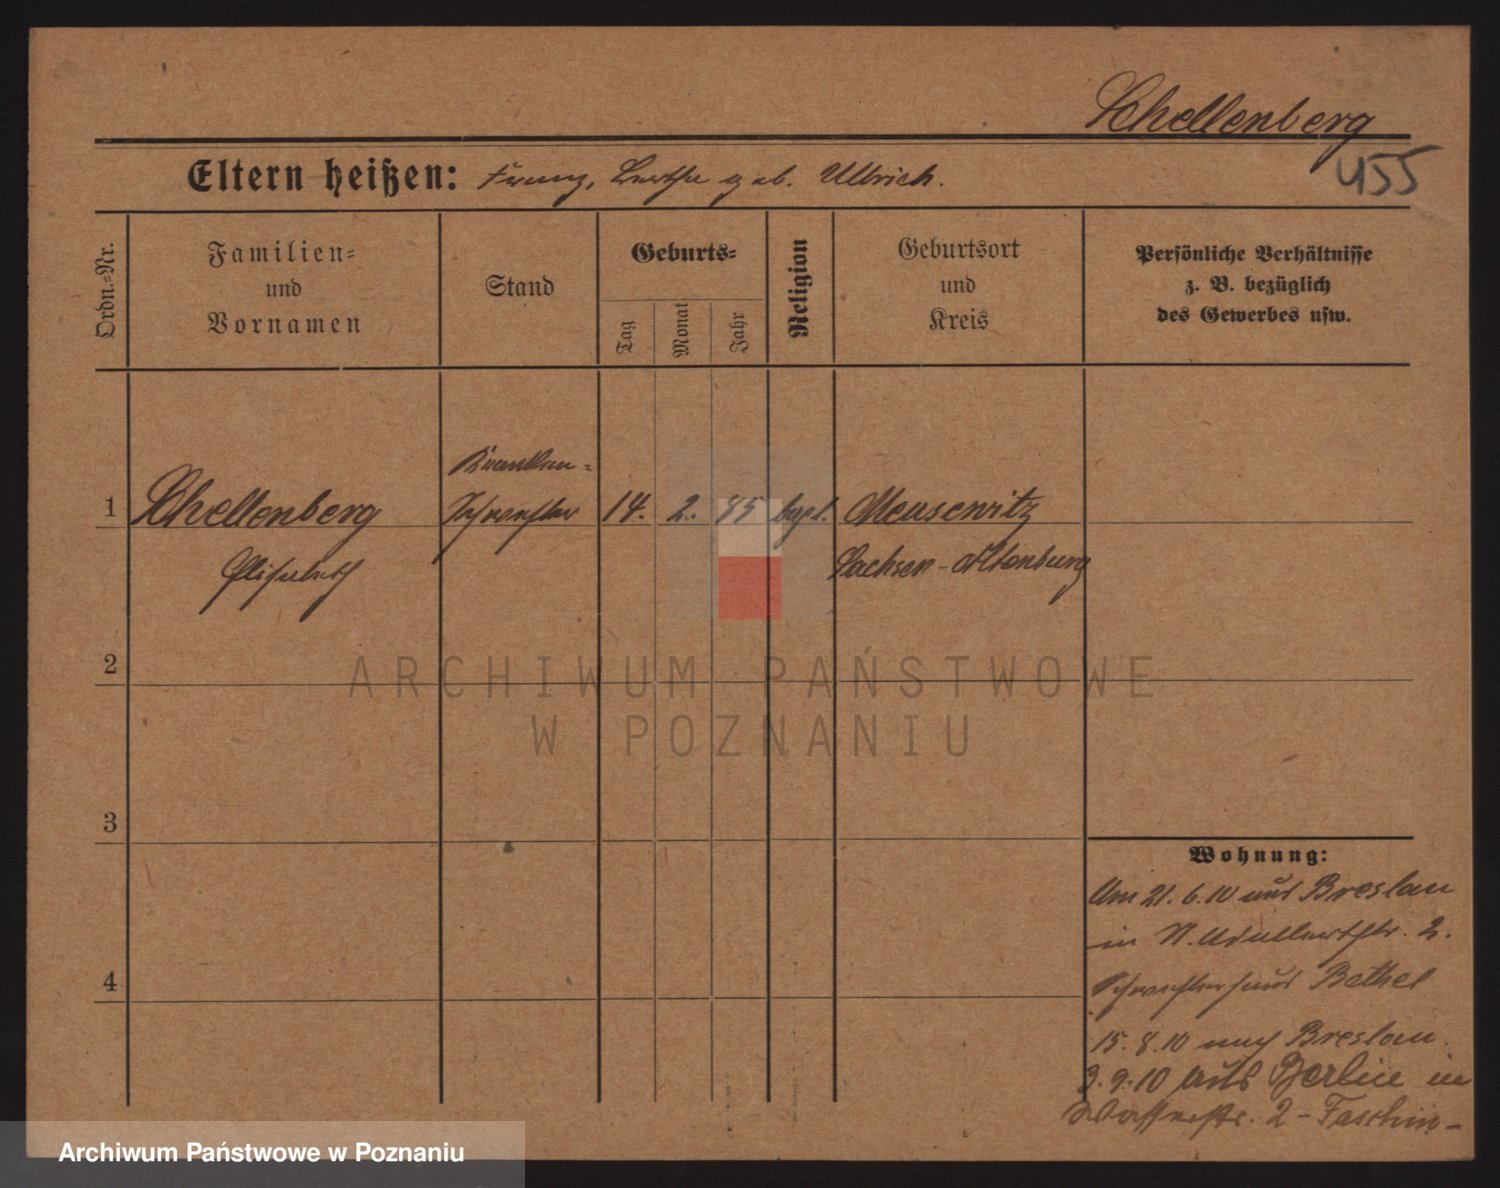 Schellenberg
455
Eltern heißen: Franz, Bertha geb. Ullrich.
Ordn.=Nr.
Familien=
und
Vornamen
Stand
Geburts=
Tag
Monat
Jahr
Religion
Geburtsort
und
Kreis
Persönliche Verhältnisse
z. B. bezüglich
des Gewerbes usw.
Kranken=
1 Schellenberg Schwester 14. 2. 85 bapt. Meusewitz
Elisabeth Sachsen-Altenburg
2
ARCHIWUM PAŃSTWOWE
W POZNANIU
3
4
Wohnung:
Am 21. 6. 10 aus Breslau
in N. Adalbertstr. 2.
Schwesterhaus Bethel
15. 8. 10 nach Breslau.
3. 9. 10 aus Berlin in
Wasserstr. 2 -
Archiwum Państwowe w Poznaniu